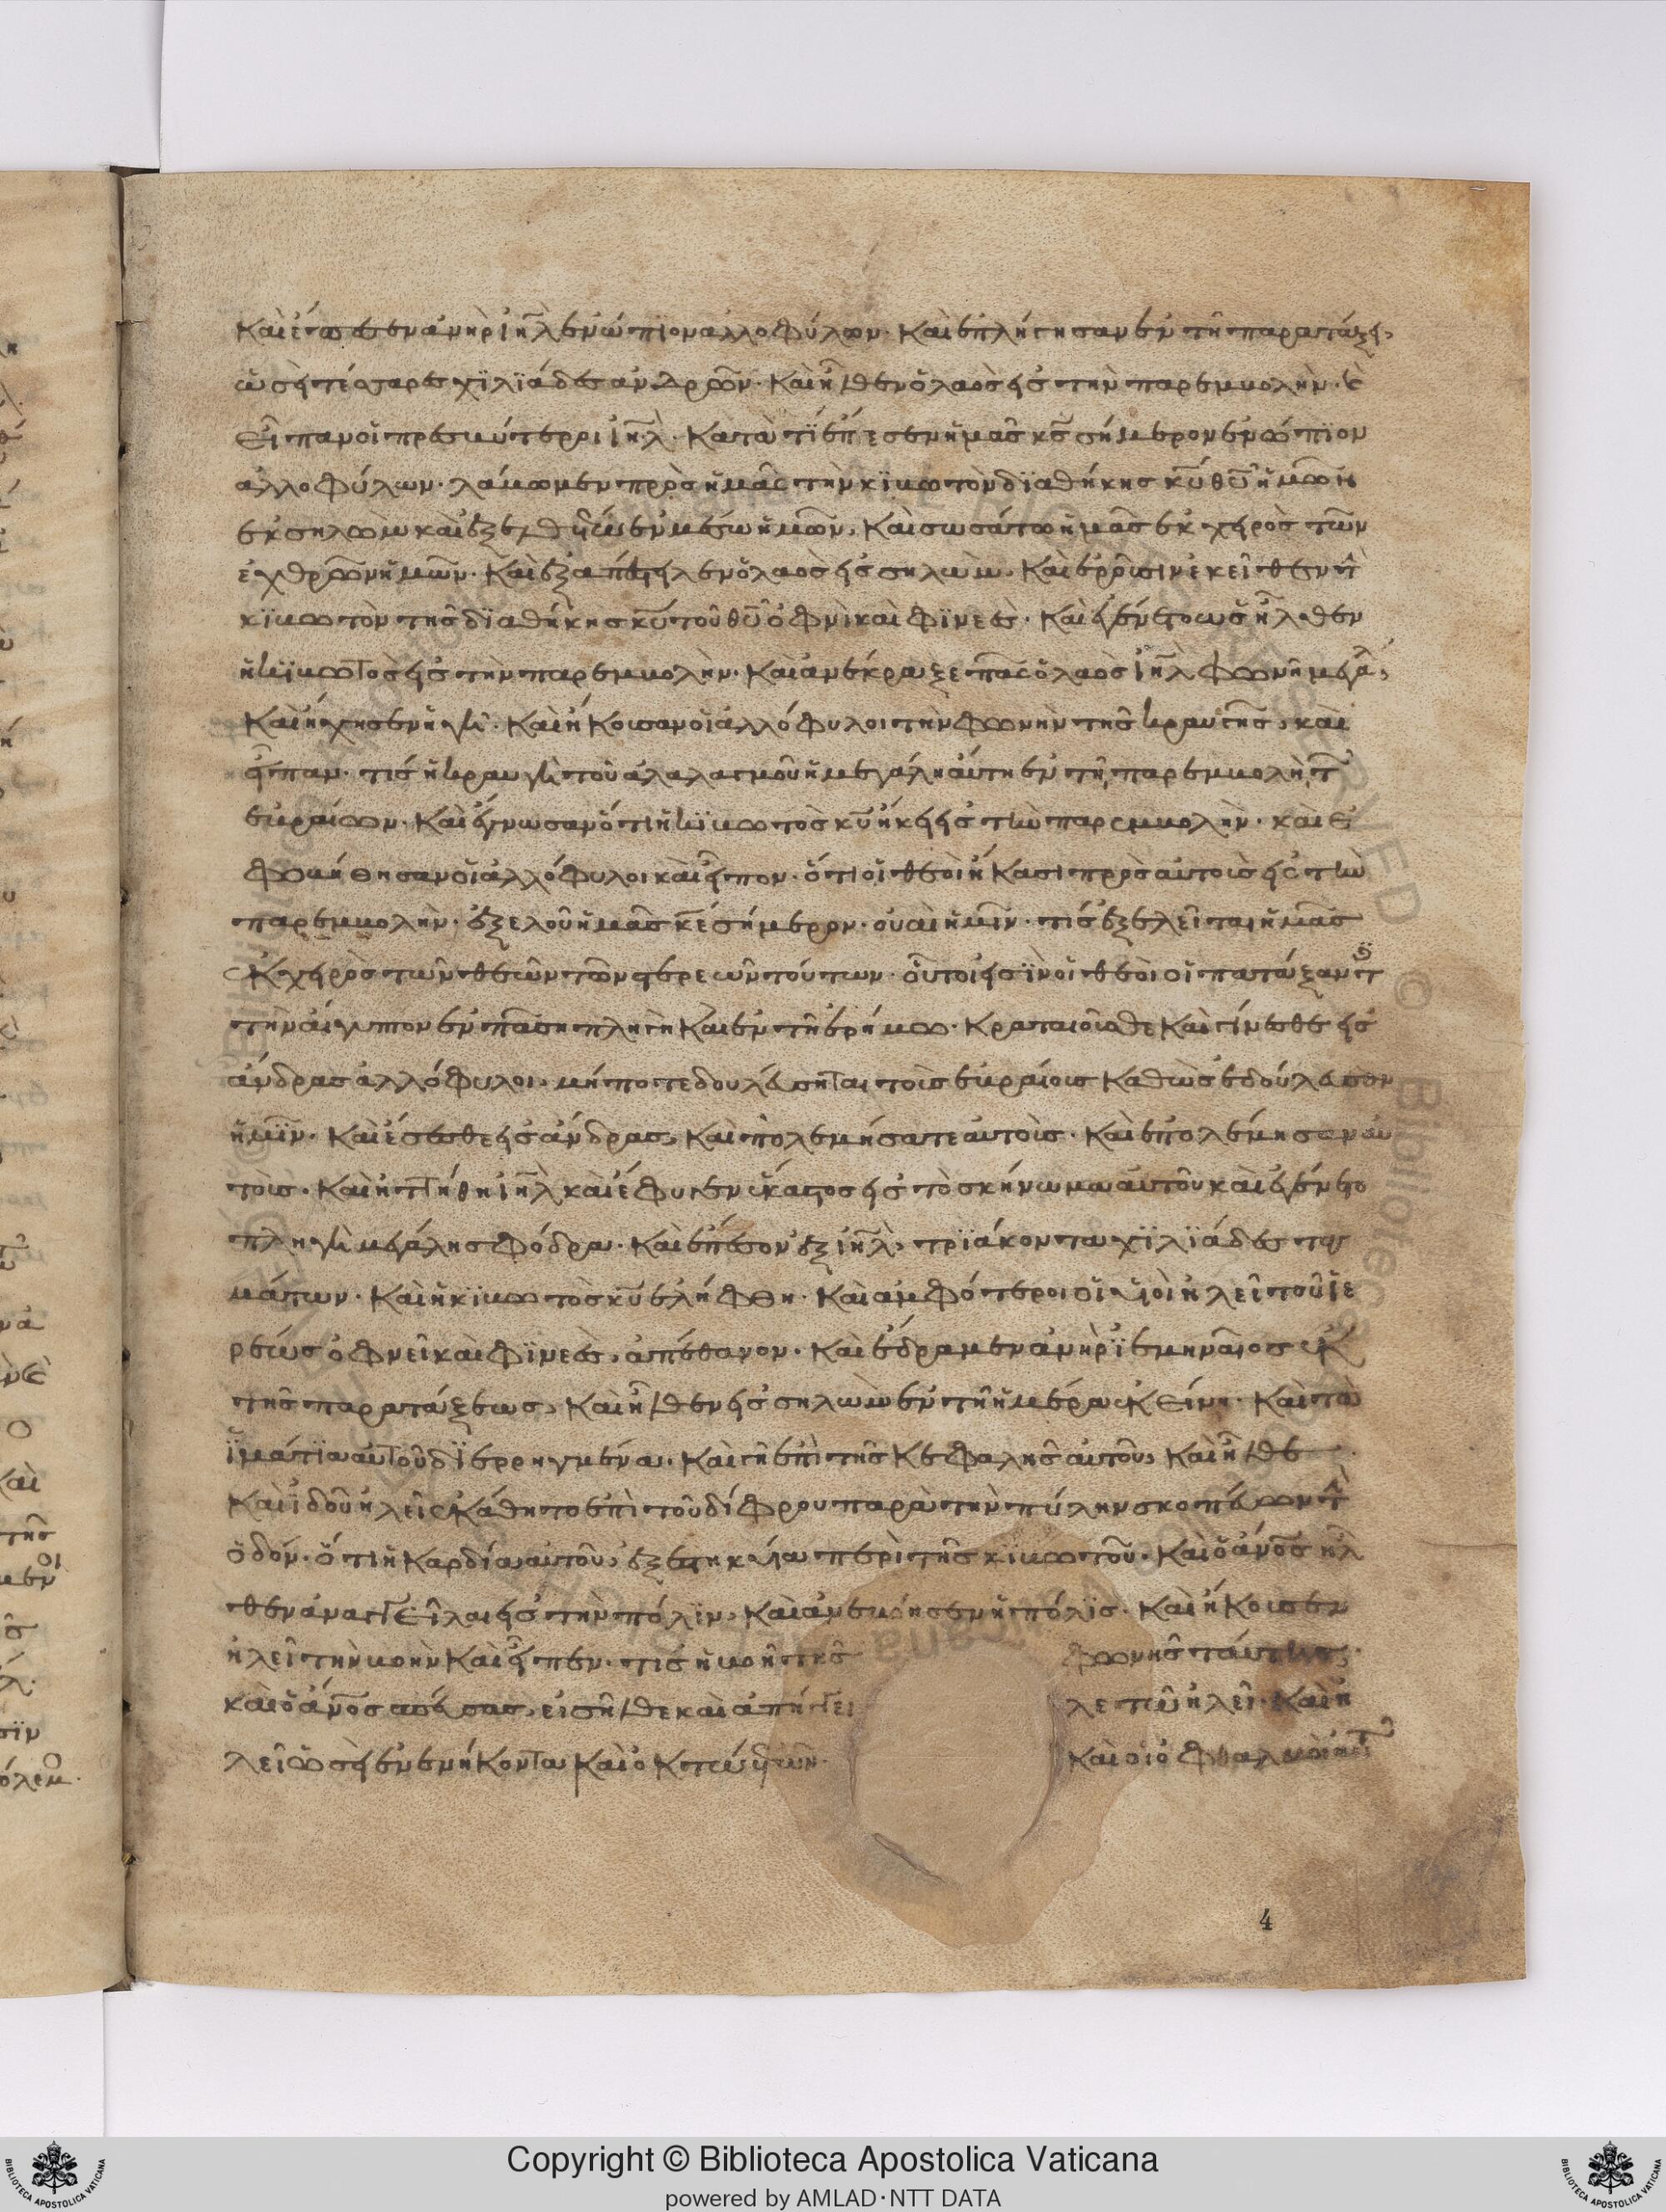 καὶ ἔπεσεν ἀνὴρ ἰη̅λ ἐνώπιον ἀλλοφύλων· καὶ ἐπλήγησαν ἐν τῆ παρατάξει,
ὡσεὶ τέσσαρες χϊλϊάδες ἀνδρῶν· καὶ ἦλθεν ὁ λαὸς εἰς τὴν παρεμβολὴν· ϗ
εἶπαν οἱ πρεσβύτεροι ἰη̅λ· κατὰ τΐ ἔπταισεν ἡμᾶς κ̅ς σήμερον ἐνώπϊον
ἀλλοφύλων· λάβωμεν πρὸς ἡμᾶς τὴν κϊβωτὸν δϊαθήκης κ̅υ θ̅υ ἡμῶν
ἐκ σηλὼμ καὶ ἐξελθέτω ἐν μέσω ἡμῶν, καὶ σωσάτω ἡμᾶς ἐκ χειρὸς τῶν
ἐχθρῶν ἡμῶν· καὶ ἐξαπέστειλεν ὁ λαὸς εἰς σηλὼμ· καὶ αἴρουσιν ἐκεῖθεν τ̅
κϊβωτὸν τῆς δϊαθήκης κ̅υ τοῦ θ̅υ ὀφνὶ καὶ φϊνεὲς· καὶ ἐγένετο ὡς ἦλθεν
ἡ κϊβωτὸς εἰς τὴν παρεμβολὴν· καὶ ἀνέκραξε πᾶς ὁ λαὸς ἰη̅λ φωνῆ μεγά,
καὶ ἤχησεν ἡ γῆ· καὶ ἤκουσαν οἱ ἀλλόφυλοι τὴν φωνὴν τῆς κραυγῆς, καὶ
εἶπαν· τίς ἡ κραυγὴ τοῦ ἀλαλαγμοῦ ἡ μεγάλη αὕτη ἐν τῆ παρεμβολῆ τ̅
ἑβραίων· καὶ ἔγνωσαν ὅτι ἡ κϊβωτὸς κ̅υ ἥκει εἰς τὴν παρεμβολὴν· καὶ ἐ
φοβήθησαν οἱ ἀλλόφυλοι καὶ εἶπον· ὅτι οἱ θεοὶ ἥκασι πρὸς αὐτοὺς εἰς τὴν
παρεμβολὴν· ἐξελοῦ ἡμᾶς κ̅ε σήμερον· οὐαὶ ἡμῖν· τίς ἐξελεῖται ἡμᾶς
ἐκ χειρὸς τῶν θεῶν τῶν στερεῶν τούτων· οὗτοι εἰσϊν οἱ θεοὶ οἱ πατάξαντ
τὴν αἴγυπτον ἐν πάση πληγῆ καὶ ἐν τῆ ἐρήμω· κραταιοῦσθε καὶ γίνεσθε εἰς
ἄνδρας ἀλλόφυλοι, μήποτε δουλεύσηται τοῖς ἑβραίοις καθὼς ἐδούλευσαν
ἡμῖν· καὶ ἔσεσθε εἰς ἄνδρας, καὶ πολεμήσατε αὐτοῖς· καὶ ἐπολέμησαν αὐ
τοῖς· καὶ ἡττήθη ἰη̅λ καὶ ἔφυγεν ἕκαστος εἰς τὸ σκήνωμα αὐτοῦ καὶ ἐγένετο
πληγὴ μεγάλη σφόδρα· καὶ ἔπεσον ἐξ ἰη̅λ, τρϊάκοντα χϊλϊάδες ταγ
μάτων· καὶ ἡ κϊβωτὸς κ̅υ ἐλήφθη· καὶ ἀμφότεροι οἱ υἱοὶ ἠλεῖ τοῦ ἱε
ρέως ὀφνεῖ καὶ φϊνεὲς, ἀπέθανον· καὶ ἔδραμεν ἀνὴρ ϊεμηναῖος ἐκ
τῆς παρατάξεως, καὶ ἦλθεν εἰς σηλὼμ ἐν τῆ ἡμέρα ἐκείνη· καὶ τὰ
ϊμάτϊα αὐτοῦ δϊερρηγμένα· καὶ γῆ ἐπὶ τῆς κεφαλῆς αὐτοῦ, καὶ ἦλθε
καὶ ἰδοῦ ἠλεὶ ἐκάθητο ἐπὶ τοῦ δίφρου παρὰ τὴν πύλην σκοπεύων τ̅
ὁδόν· ὅτι ἡ καρδία αὐτοῦ, ἐξεστηκυῖα περὶ τῆς κϊβωτοῦ· καὶ ὁ ἄν̅ος ἦλ
θεν ἀναγγεῖλαι εἰς τὴν πόλϊν, καὶ ἀνεβόησεν ἡ πόλϊς· καὶ ἤκουσεν
ἠλεῖ τὴν βοὴν καὶ εἶπεν· τίς ἡ βοὴ τῆς φωνῆς ταύτης·
καὶ ὁ ἄν̅ος σπεύσας, εἰσῆλθε καὶ ἀπήγγει λε τῶ ἠλεῖ· καὶ ἠ
λεῖ ὡσεὶ ἐνενήκοντα καὶ ὀκτὼ ἐτῶν· καὶ οἱ ὀφθαλμοὶ αὐτ̅
4
Copyright © Biblioteca Apostolica Vaticana
powered by AMLAD·NTT DATA